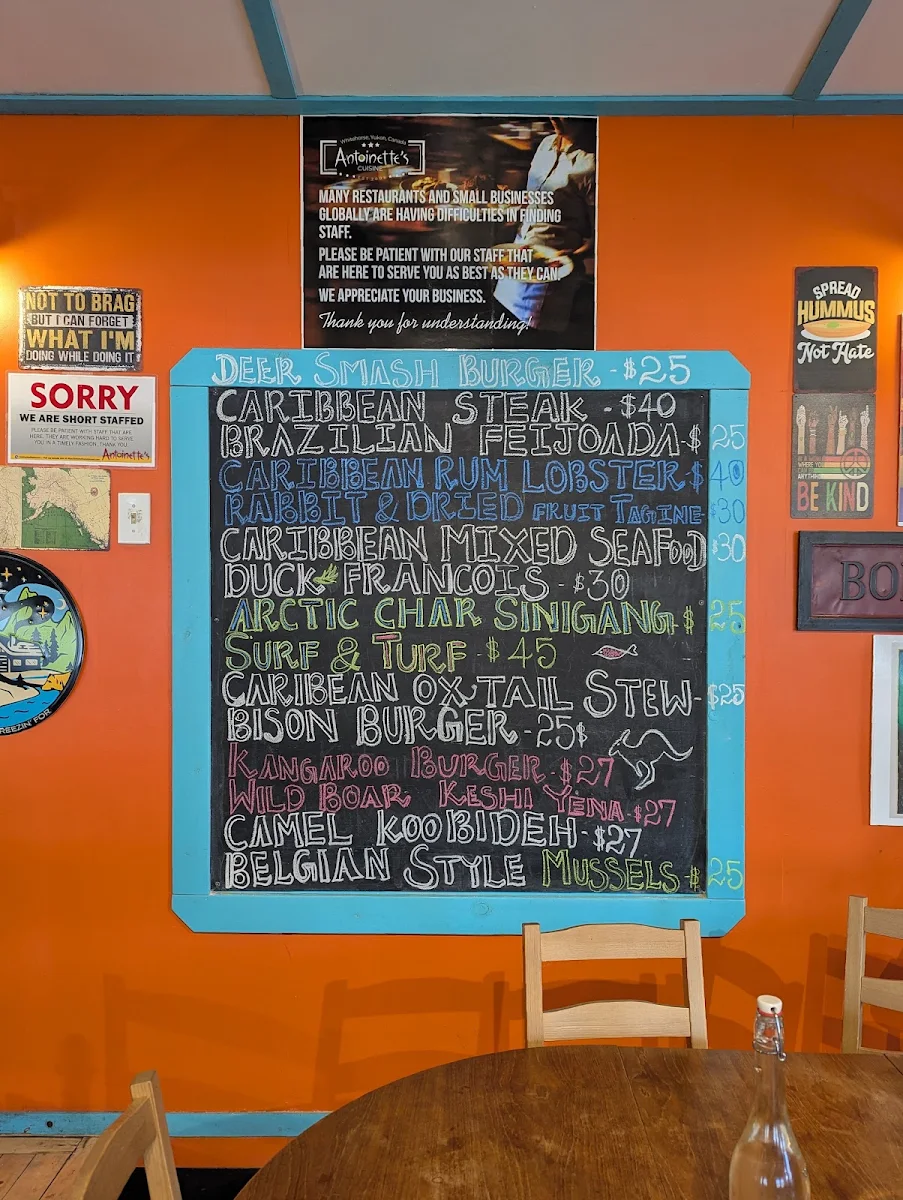 Whitehorse, Yukon, Canada
Antoinette's
CUISINE
MANY RESTAURANTS AND SMALL BUSINESSES
GLOBALLY ARE HAVING DIFFICULTIES IN FINDING
STAFF.
PLEASE BE PATIENT WITH OUR STAFF THAT
ARE HERE TO SERVE YOU AS BEST AS THEY CAN.
WE APPRECIATE YOUR BUSINESS.
Thank you for understanding!
NOT TO BRAG
BUT I CAN FORGET
WHAT I'M
DOING WHILE DOING IT
SORRY
WE ARE SHORT STAFFED
PLEASE BE PATIENT WITH STAFF THAT ARE
HERE, THEY ARE WORKING HARD TO SERVE
YOU IN A TIMELY FASHION. THANK YOU
Antoinette's
REEZIN' FOR
DEER SMASH BURGER - $25
CARIBBEAN STEAK - $40
BRAZILIAN FEIJOADA - $25
CARIBBEAN RUM LOBSTER - $40
RABBIT & DRIED FRUIT TAGINE $30
CARIBBEAN MIXED SEAFOOD $30
DUCK FRANCOIS - $30
ARCTIC CHAR SINIGANG $25
SURF & TURF $45
CARIBEAN OXTAIL STEW - $25
BISON BURGER - 25$
KANGAROO BURGER - $27
WILD BOAR KESHI YENA - $27
CAMEL KOOBIDEH - $27
BELGIAN STYLE MUSSELS - $25
SPREAD
HUMMUS
Not Hate
BE KIND
BO